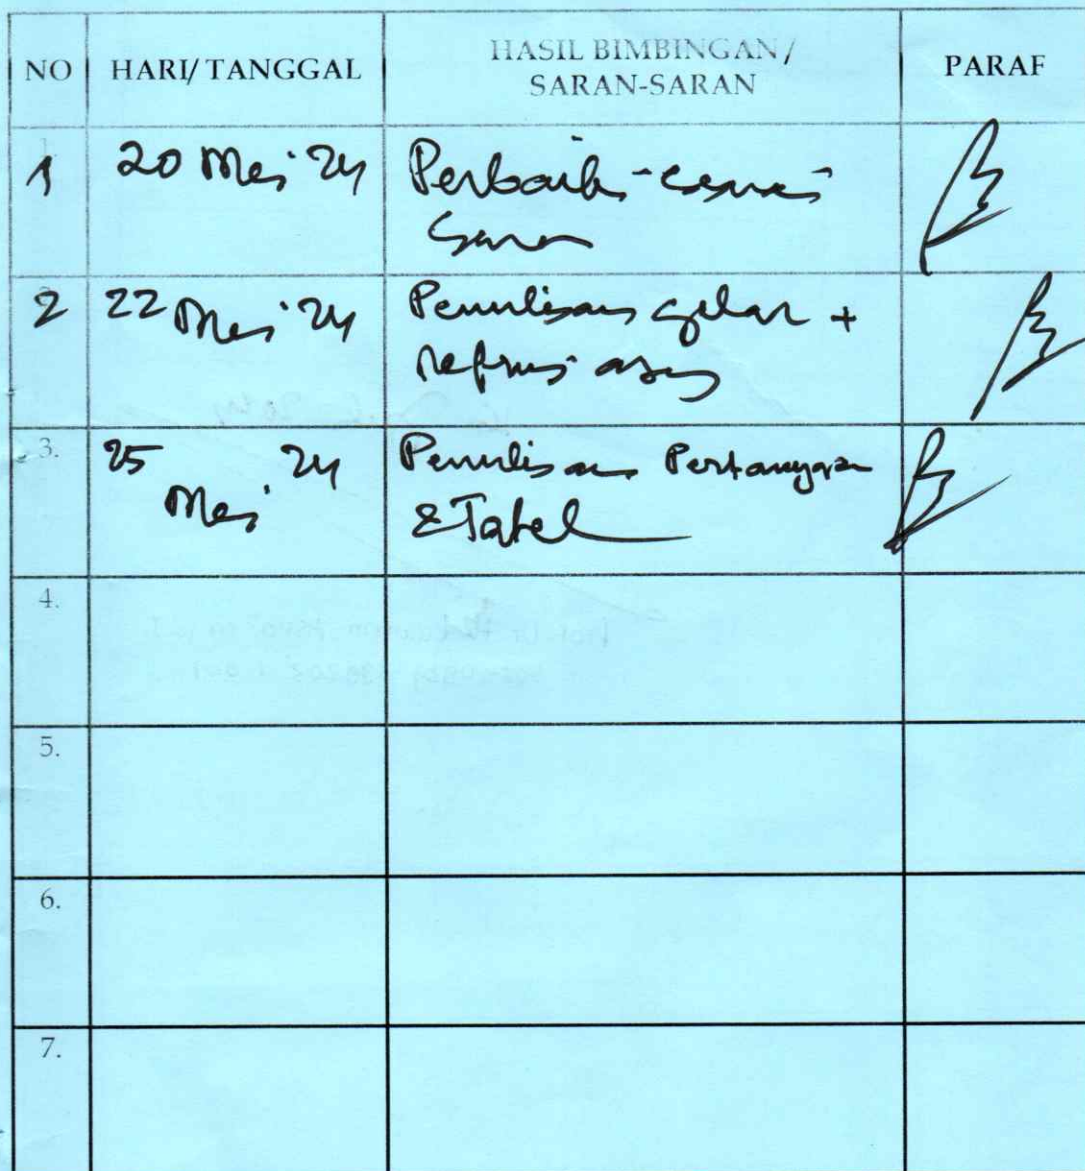 NO HARI/TANGGAL HASIL BIMBINGAN/ PARAF
SARAN-SARAN
1 20 Mei 24 Perbaiki sesuai
Saran
2 22 Mei 24 Penulisan gelar +
3. 25 Mei 24 Penulisan Pertanyaan
& Tabel
4.
5.
6.
7.